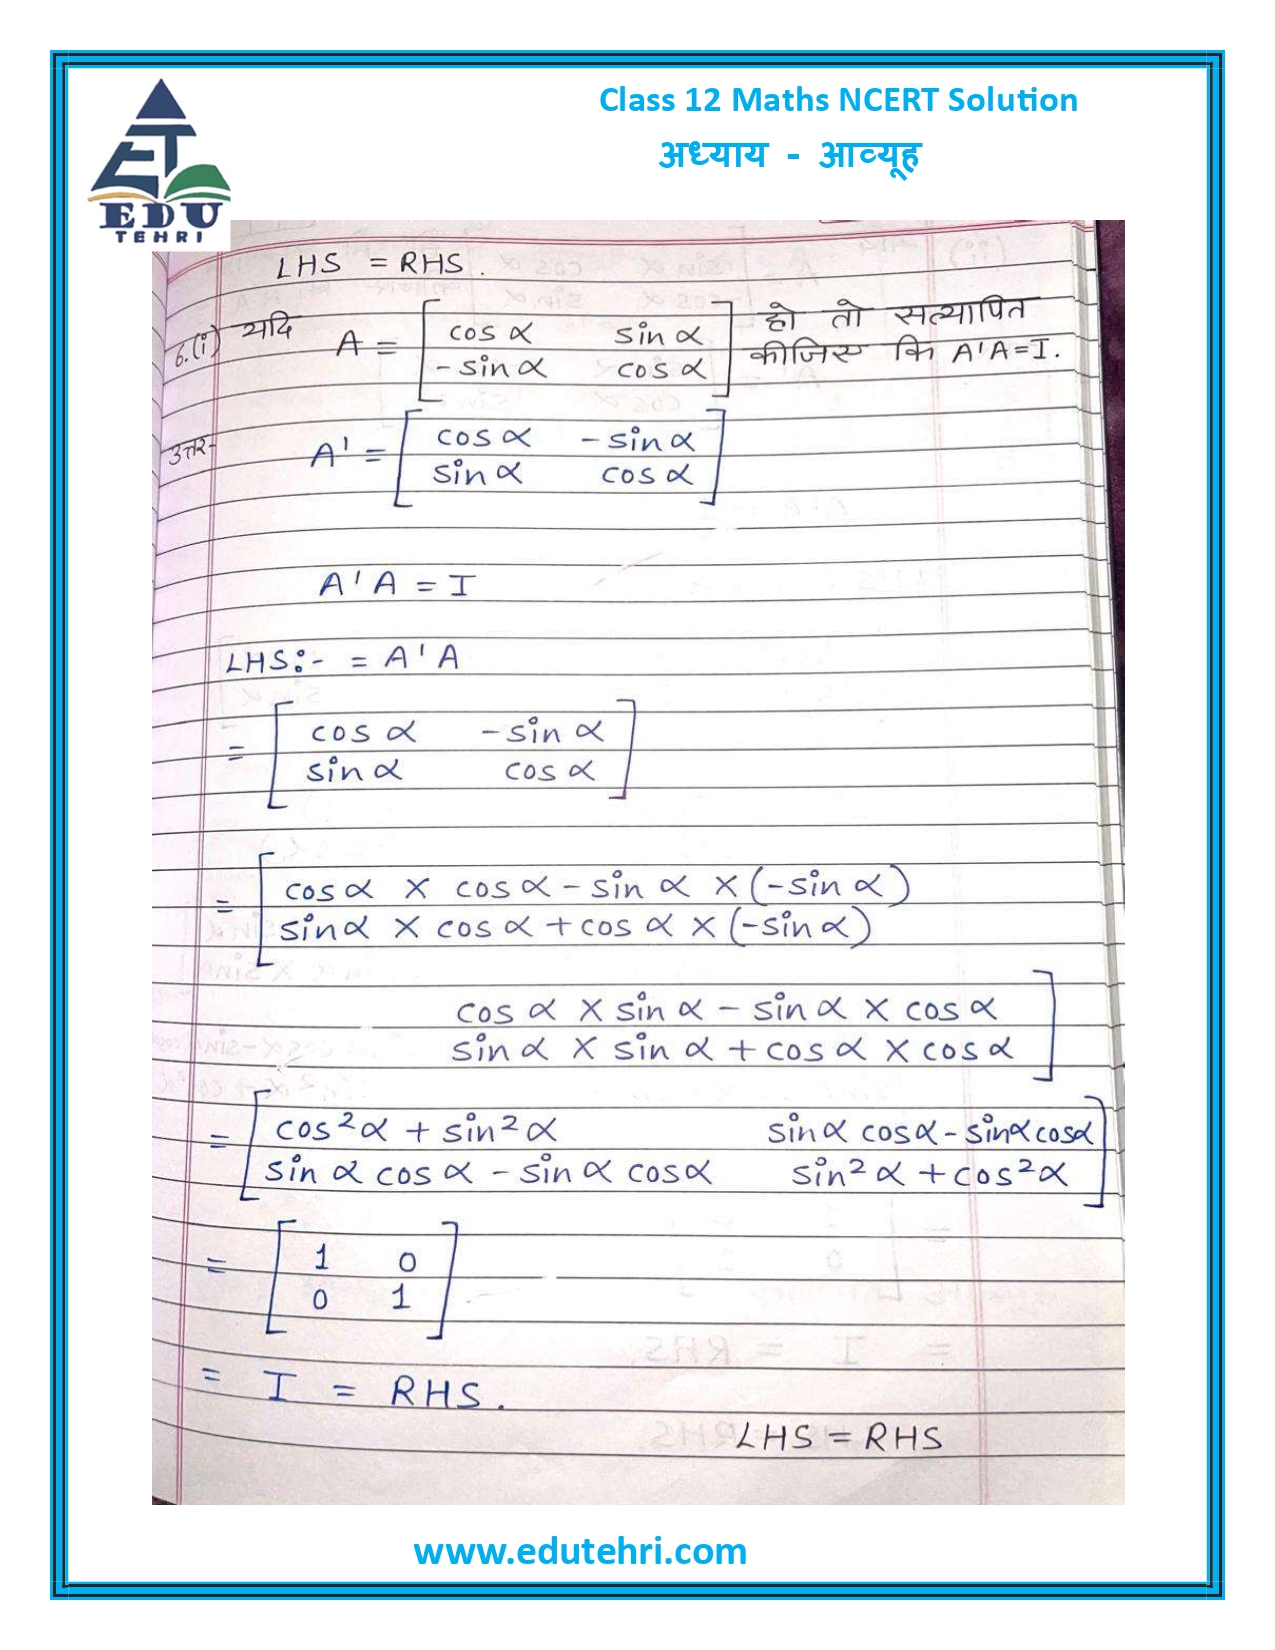 Class 12 Maths NCERT Solution
अध्याय - आव्यूह
ET
EDU
TEHRI
LHS = RHS.
6.(i) यदि A = [cos α sin α
-sin α cos α] हो तो सत्यापित
कीजिए कि A'A=I.
उत्तर- A' = [cos α -sin α
sin α cos α]
A'A = I
LHS:- = A'A
= [cos α -sin α
sin α cos α]
= [cos α × cos α - sin α × (-sin α)
sin α × cos α + cos α × (-sin α)
cos α × sin α - sin α × cos α
sin α × sin α + cos α × cos α]
= [cos²α + sin²α sin α cos α - sin α cos α
sin α cos α - sin α cos α sin²α + cos²α]
= [1 0
0 1]
= I = RHS.
LHS = RHS
www.edutehri.com